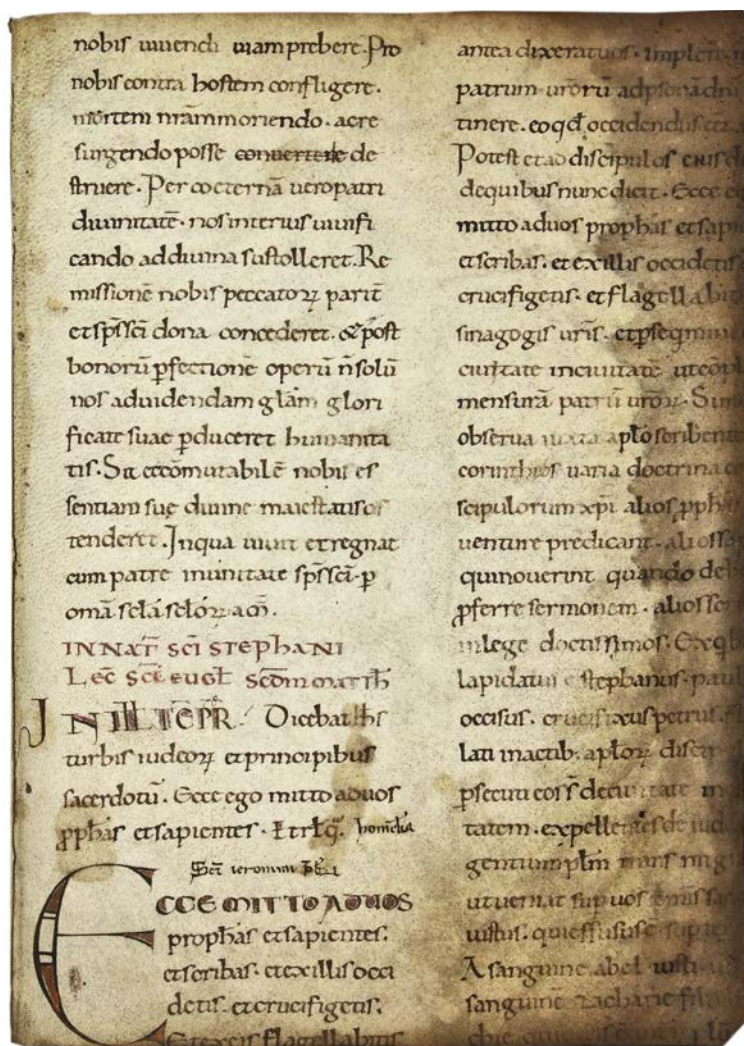 nobis uiuendi uiam prebere. Pro
nobis contra hostem confligere.
mortem nr̄am moriendo. ac re
surgendo posse convertere de
struere. Per coęternā uero patri
diuinitatē. nos interius uiuifi
cando ad diuina sustolleret. Re
missionē nobis peccatoꝝ parit̄
et sp̄s sc̄i dona concederet. & post
bonorū ꝑfectionē operū n̄ solū
nos ad uidendam gl̄am glori
ficate suae ꝑduceret humanita
tis. S; et incōmutabilē nobis es
sentiam suę diuine maiestatis os
tenderet. In qua uiuit et regnat
cum patre in unitate sp̄s sc̄i. ꝑ
om̄a sc̄la sc̄loꝝ am̄.
IN NAT̄ SC̄I STEPHANI
LEC̄ SC̄I EUGL̄ SCD̄M MATTH̄
IN ILL̄ TĒPR̄. Dicebat ih̄s
turbis iudeoꝝ et principibus
sacerdotū. Ecce ego mitto ad uos
ꝓph̄as et sapientes. Et rl̄q̄. homelia
ECCE MITTO AD UOS
prophās et sapientes.
et scribas. et ex illis occi
detis. et crucifigetis.
Et ex eis flagellabitis
antea dixerat uos. implete
patrum ur̄orū ad psonā dn̄i
tinere. eo qd̄ occidendus
Potest et ad discipulos eius
de quibus nunc dicit. Ecce ego
mitto ad uos prophās et sapi
et scribas. et ex illis occidetis
crucifigetis. et flagellabit
sinagogis ur̄is. et ꝑseqmini
ciuitate in ciuitatē ut cōpl
mensurā patrū ur̄oꝝ. Simul
obserua iuxta apl̄o scribent
corinthios uaria doctrina
scipulorum xp̄i alios ꝓph̄as
uenture predicant. alios sa
qui nouerint quando deb
ꝓferre sermonem. alios scri
in lege doctissimos. Ex qb
lapidatur stephanus. paul
occisus. crucifixus petrus.
lati in actib; apl̄oꝝ disci
ꝑsecuti eos de ciuitate in
tatem. expellentes de iud
gentium ꝑplm̄ transmig
ut ueniat sup uos om̄is sa
iustus. qui effusus ē sup
A sanguine abel iusti
sanguinē zacharie filii